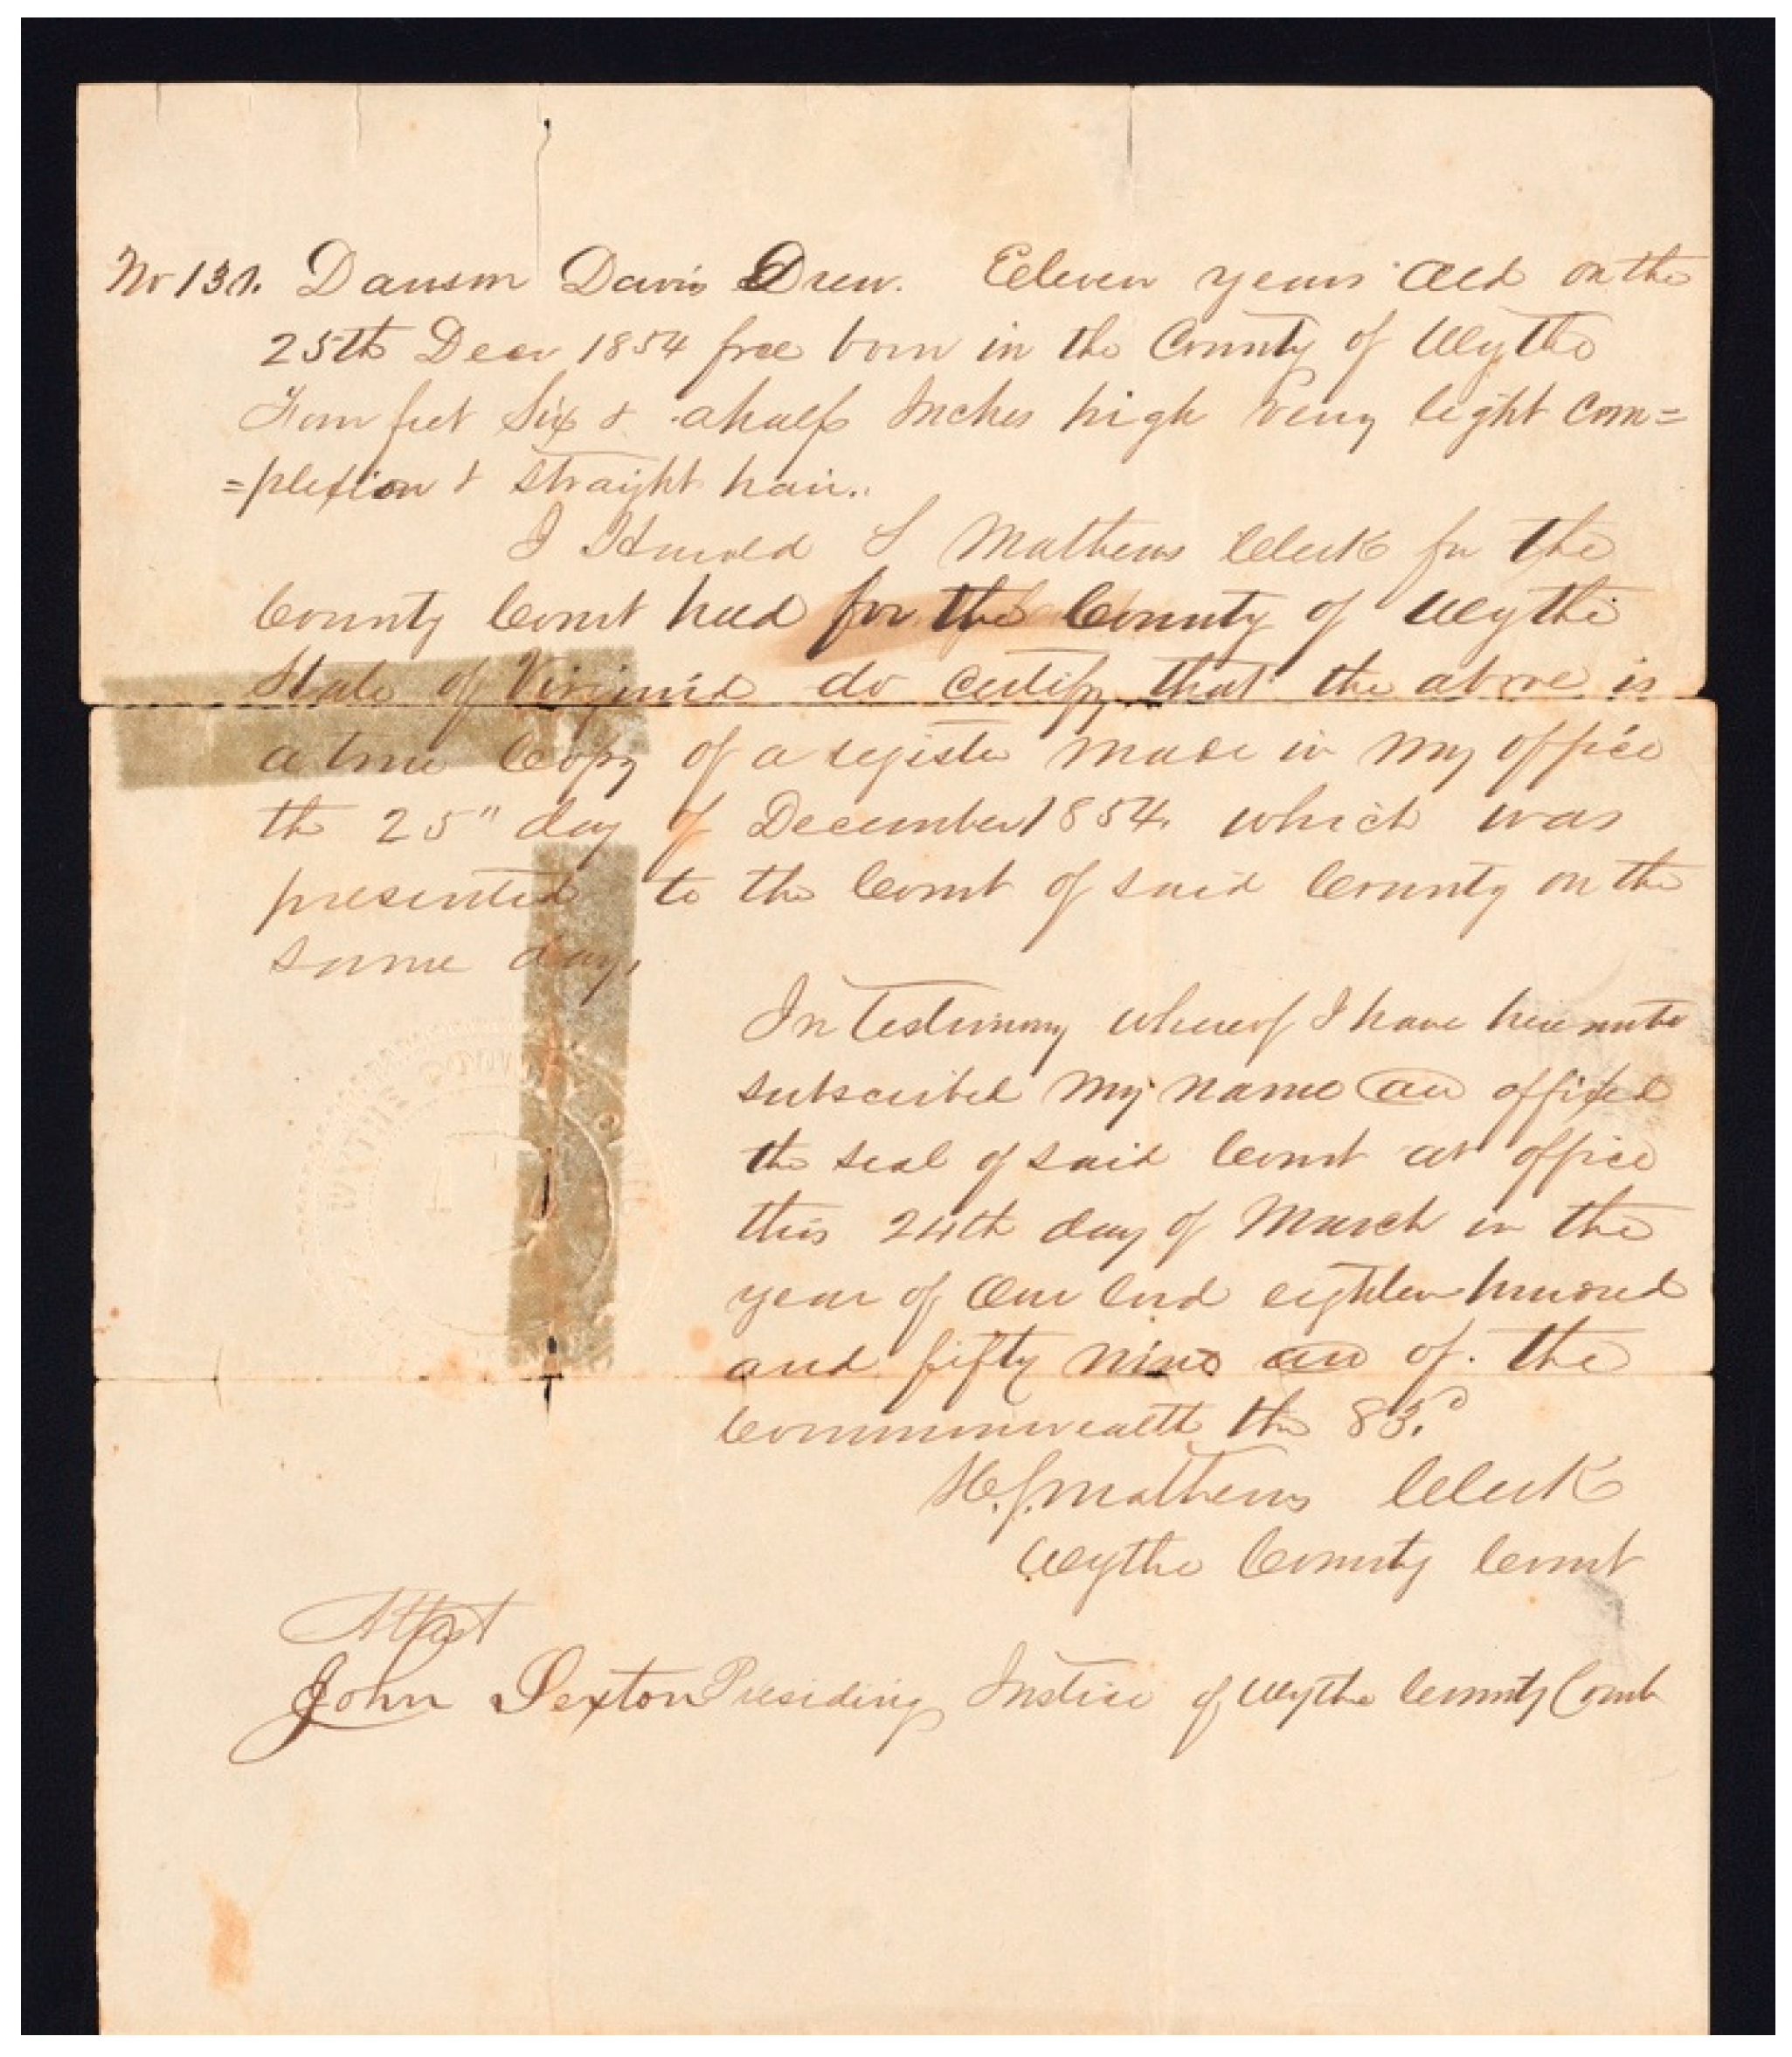 No 131. Dawson Davis Drew. Eleven years old on the
25th Decr 1854 free born in the County of Wythe
Four feet Six & a half Inches high very light com=
=plexion & straight hair.
I Harold S Mathews Clerk for the
County Court held for the County of Wythe
State of Virginia do certify that the above is
a true Copy of a register made in my office
the 25" day of December 1854. which was
presented to the Court of said County on the
same day.
In Testimony whereof I have hereunto
subscribed my name and affixed
the seal of said Court at office
this 24th day of March in the
year of Our Lord eighteen hundred
and fifty nine and of the
Commonwealth the 83.d
H. S. Mathews Clerk
Wythe County Court
WYTHE COUN
Attest
John Sexton Presiding Justice of Wythe County Court